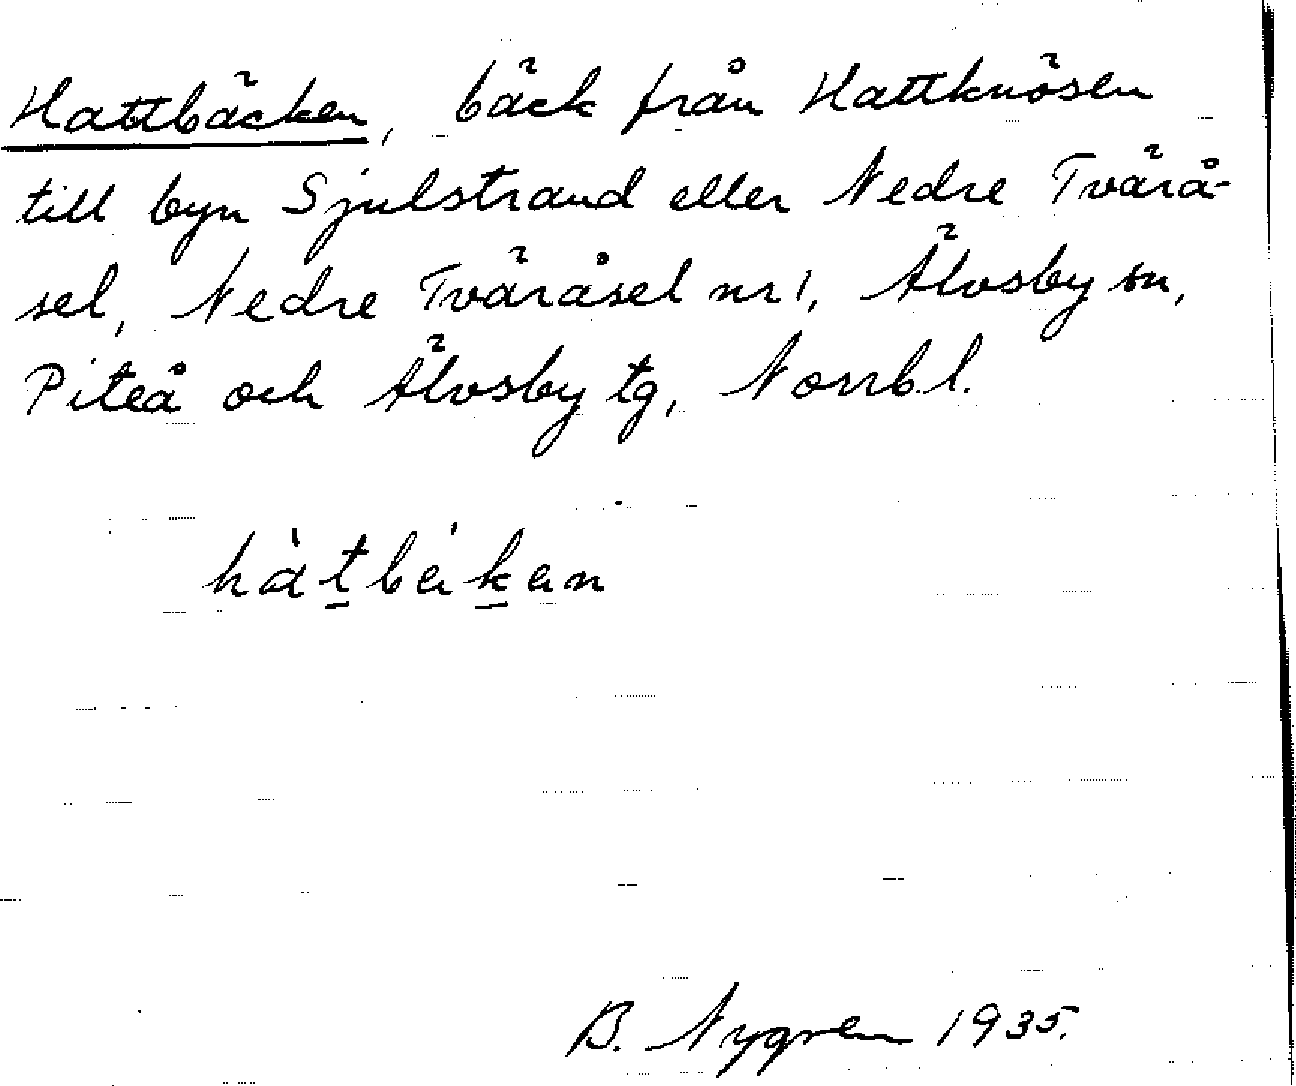 Hattbäcken, bäck från Hattknösen
till byn Sjulstrand eller Nedre Tvärå-
sel, Nedre Tväråsel nr 1, Älvsby sn,
Piteå och Älvsby tg, Norrb. l.
B. Nygren 1935.